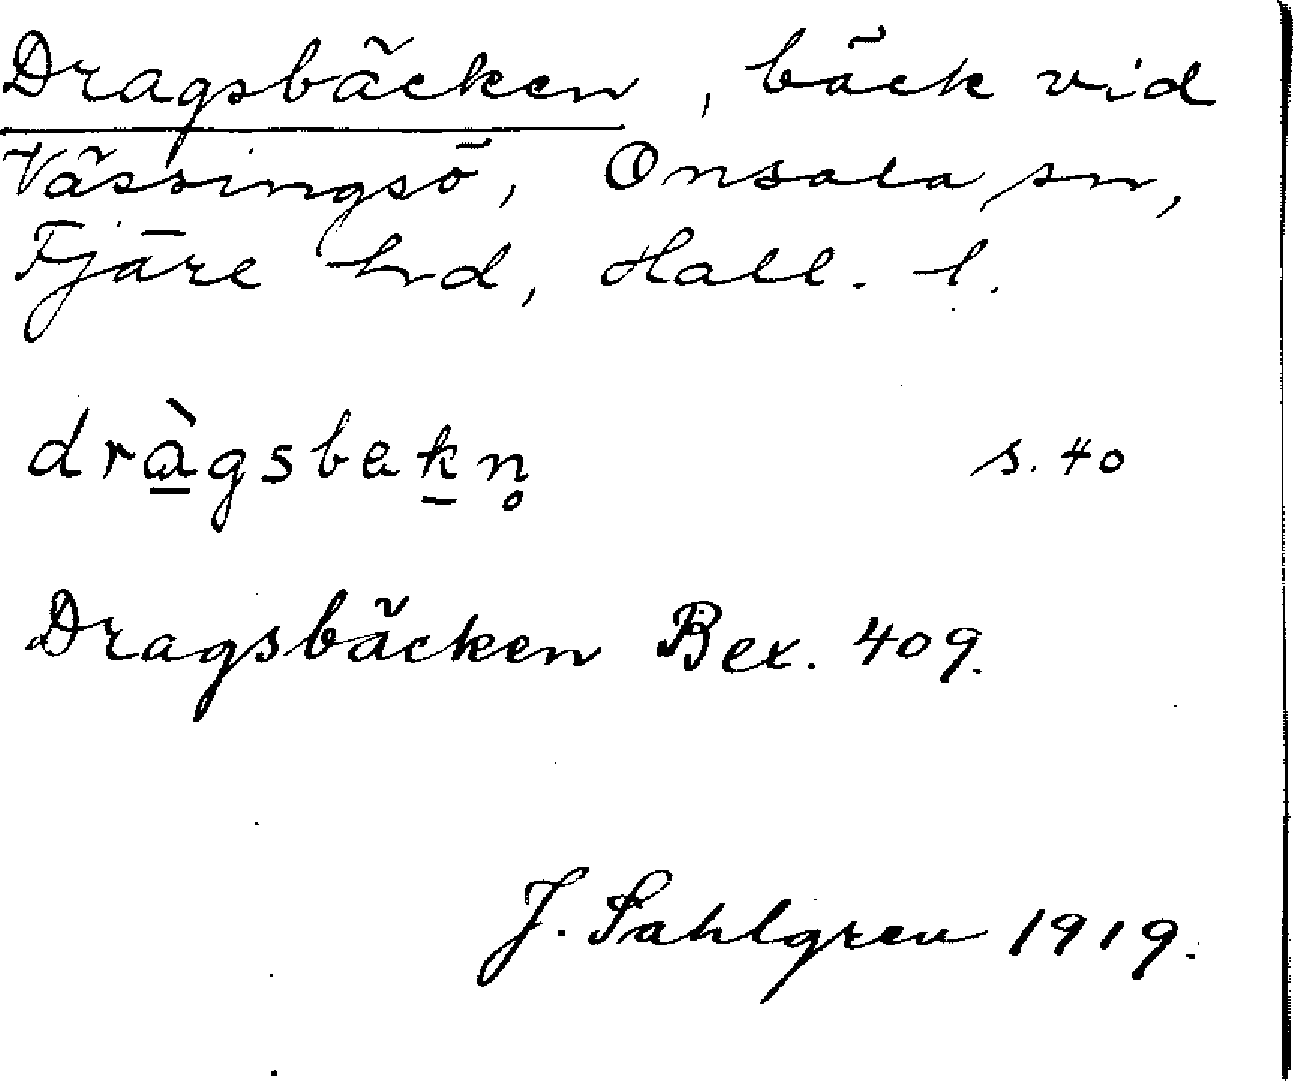 Dragsbäcken, bäck vid
Vässingsö, Onsala sn,
Fjäre hd, Hall. l.
drà̲gsbek̲n̥ s. 40
Dragsbäcken Bex. 409.
J. Sahlgren 1919.